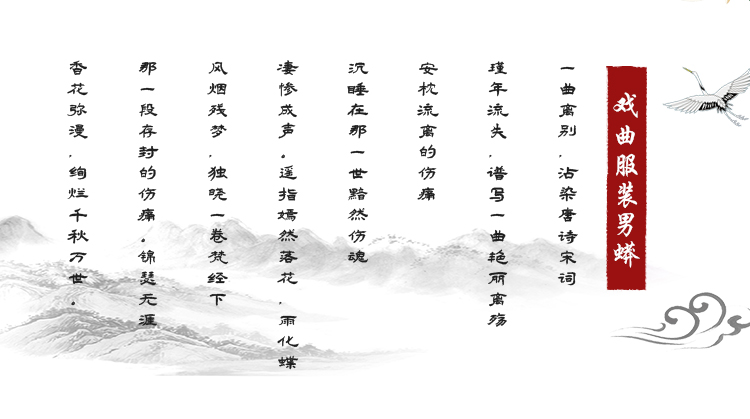 戏曲服装男蟒
一曲离别，沾染唐诗宋词
瑾年流失，谱写一曲艳丽离殇
安枕流离的伤痛
沉睡在那一世黯然伤魂
凄惨成声。遥指嫣然落花，雨化蝶
风烟残梦，独晓一卷梵经下
那一段存封的伤痛。锦瑟无涯
香花弥漫，绚烂千秋万世。